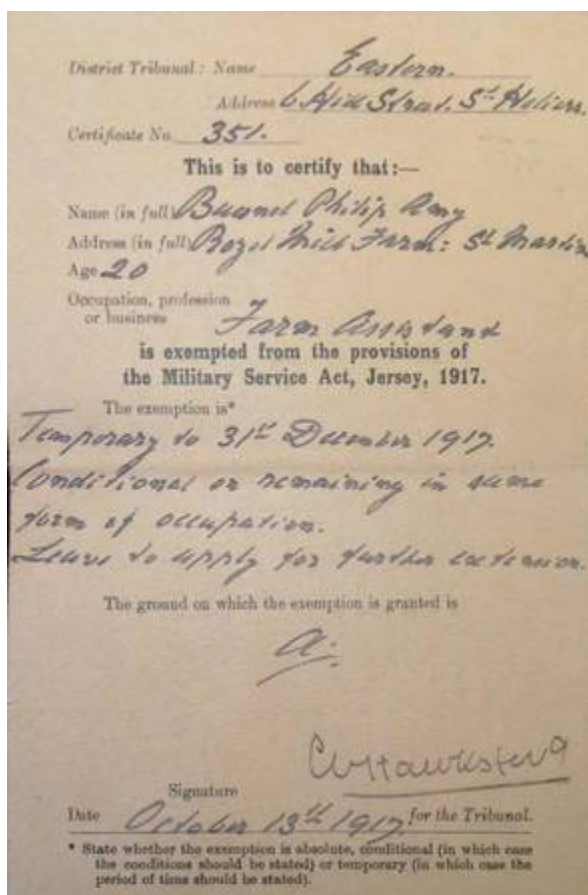 District Tribunal: Name Eastern.
Address 6 Hill Street. St Heliers.
Certificate No. 351.
This is to certify that:—
Name (in full) Philip Amy
Address (in full) Rozel Mill Farm: St Martin
Age 20
Occupation, profession
or business Farm Assistant
is exempted from the provisions of
the Military Service Act, Jersey, 1917.
The exemption is*
Temporary to 31st December 1917.
Conditional on remaining in same
form of occupation.
Leave to apply for further extension.
The ground on which the exemption is granted is
a.
Signature
Date October 13th 1917 for the Tribunal.
* State whether the exemption is absolute, conditional (in which case
the conditions should be stated) or temporary (in which case the
period of time should be stated).